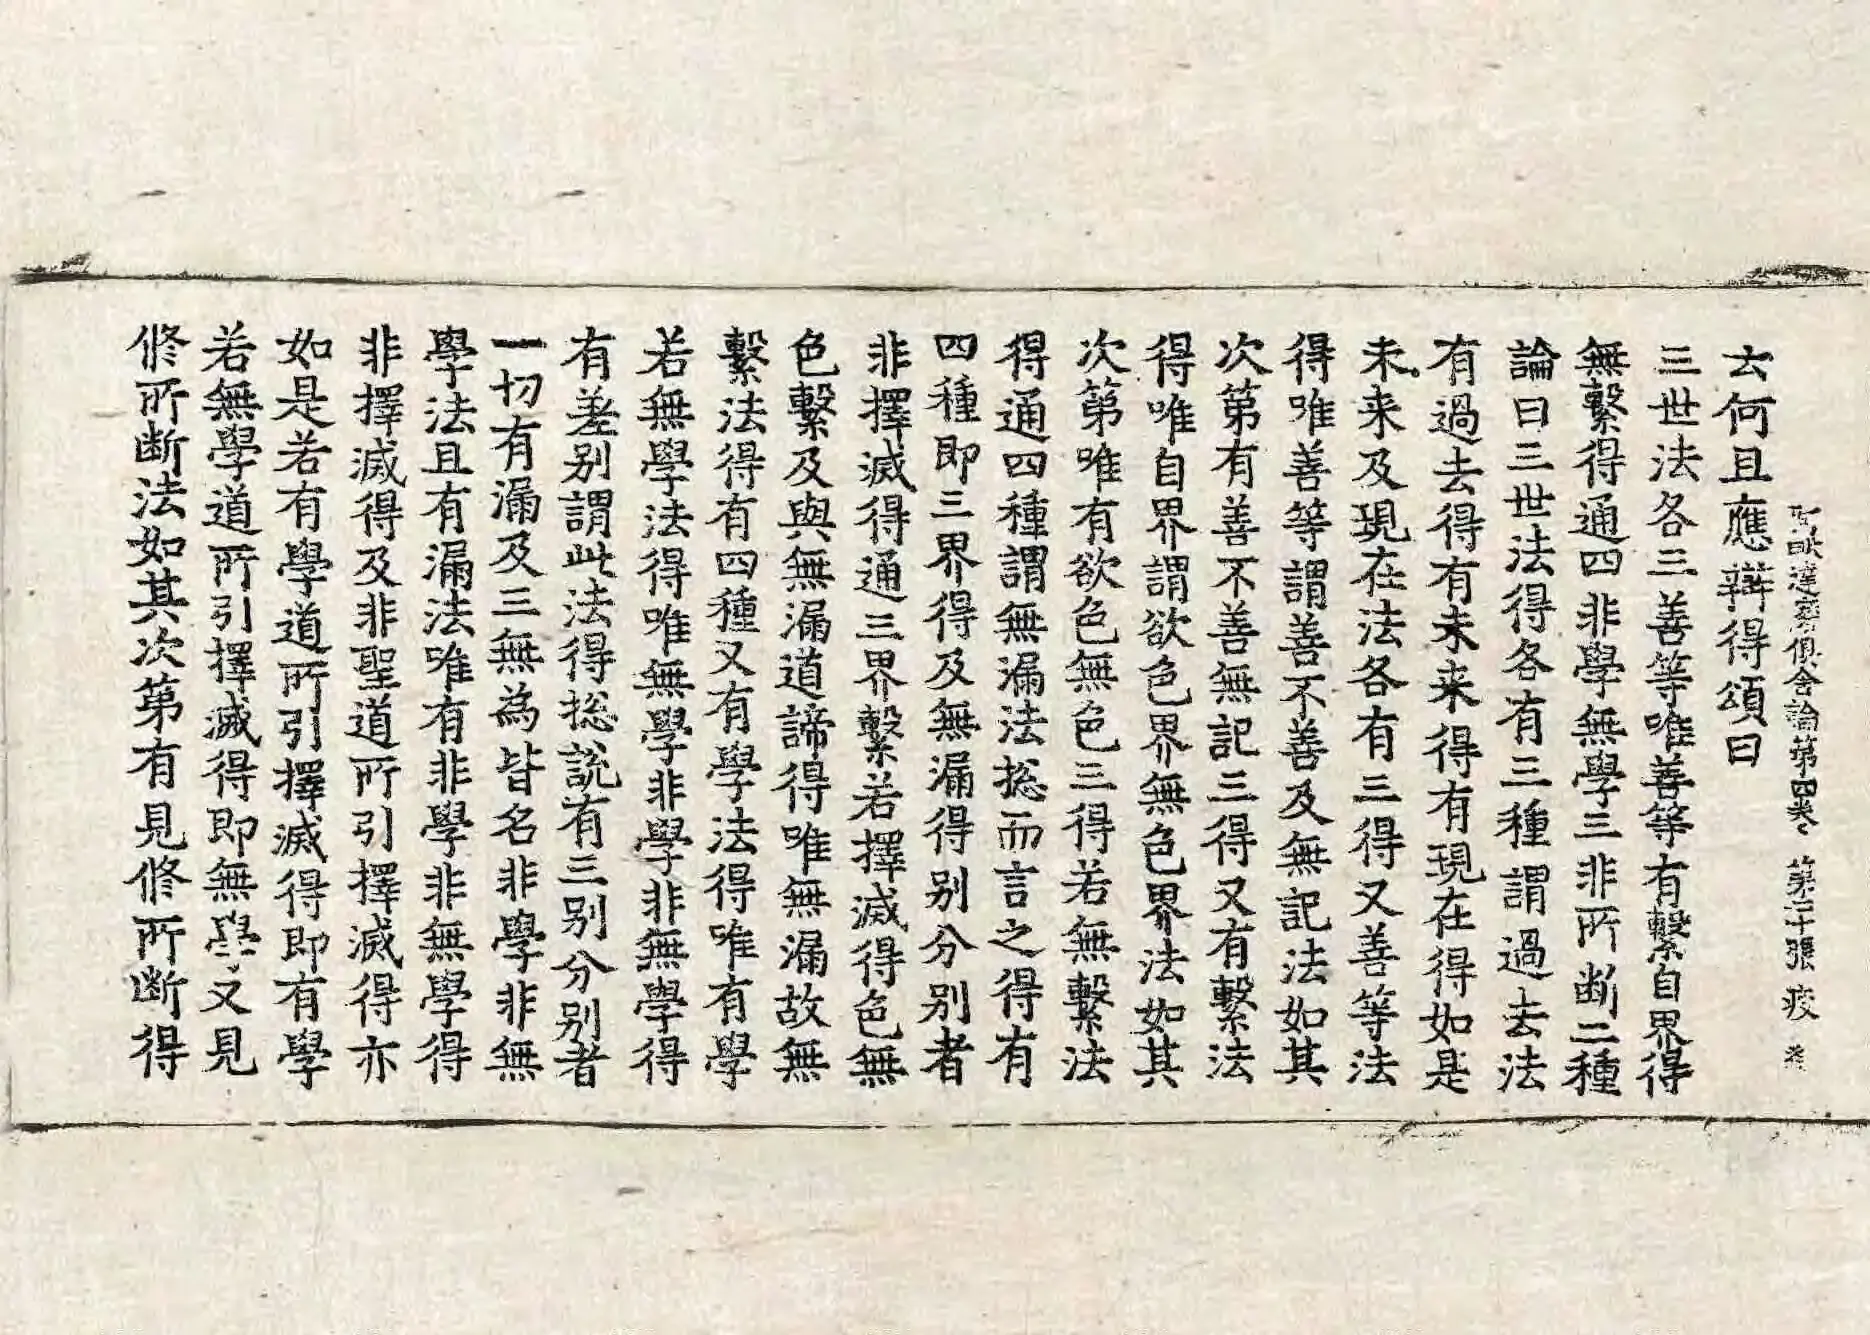 阿毗達磨俱舍論第四卷 第二十張 疲
云何且應辯得頌曰
三世法各三善等唯善等有繫自界得
無繫得通四非學無學三非所斷二種
論曰三世法得各有三種謂過去法
有過去得有未来得有現在得如是
未来及現在法各有三得又善等法
得唯善等謂善不善及無記法如其
次第有善不善無記三得又有繫法
得唯自界謂欲色界無色界法如其
次第唯有欲色無色三得若無繫法
得通四種謂無漏法捴而言之得有
四種即三界得及無漏得别分别者
非擇滅得通三界繫若擇滅得色無
色繫及與無漏道諦得唯無漏故無
繫法得有四種又有學法得唯有學
若無學法得唯無學非學非無學得
有差别謂此法得捴說有三别分别者
一切有漏及三無為皆名非學非無
學法且有漏法唯有非學非無學得
非擇滅得及非聖道所引擇滅得亦
如是若有學道所引擇滅得即有學
若無學道所引擇滅得即無學又見
修所断法如其次第有見修所断得